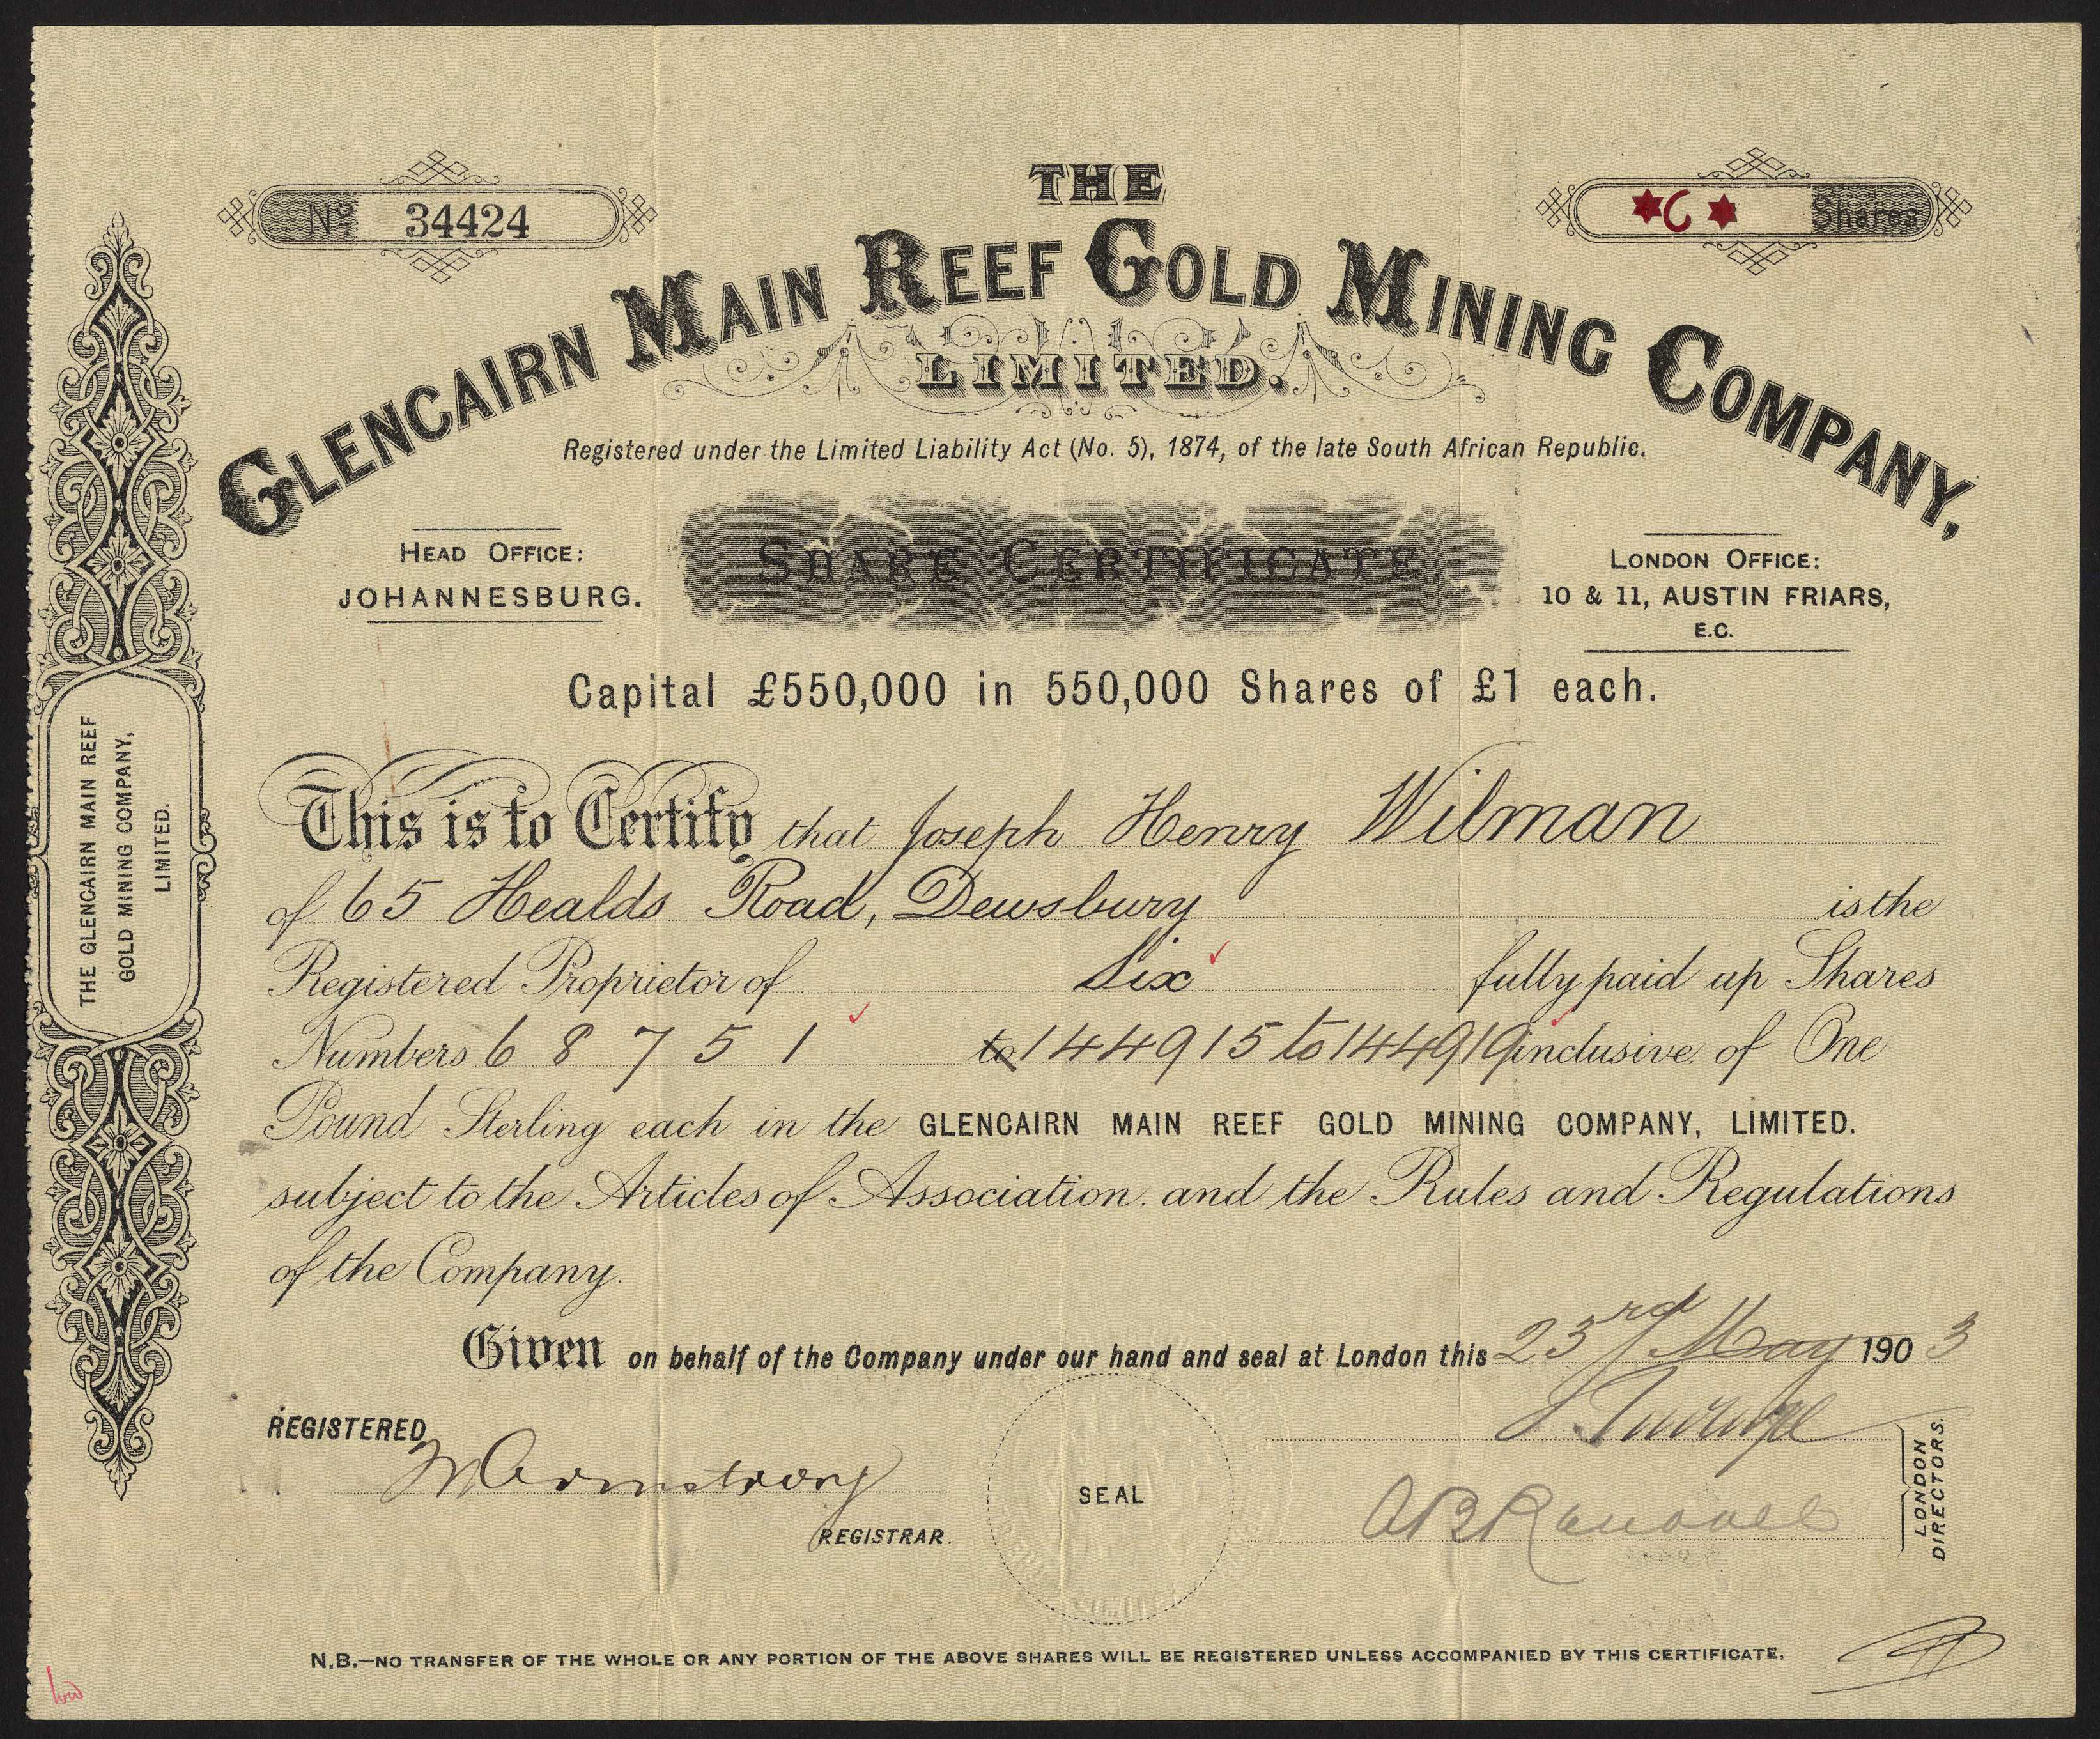 THE
GLENCAIRN MAIN REEF GOLD MINING COMPANY,
LIMITED.
No 34424
Shares
Registered under the Limited Liability Act (No. 5), 1874, of the late South African Republic.
HEAD OFFICE:
JOHANNESBURG.
SHARE CERTIFICATE.
LONDON OFFICE:
10 & 11, AUSTIN FRIARS,
E.C.
Capital £550,000 in 550,000 Shares of £1 each.
This is to Certify that Joseph Henry Wilman
of 65 Healds Road, Dewsbury is the
Registered Proprietor of Six fully paid up Shares
Numbers 68751 to 144915 to 144919 inclusive. of One
Pound Sterling each in the GLENCAIRN MAIN REEF GOLD MINING COMPANY, LIMITED.
subject to the Articles of Association. and the Rules and Regulations
of the Company.
Given on behalf of the Company under our hand and seal at London this 23rd May 1903
REGISTERED
M Armstrong
REGISTRAR.
SEAL
LONDON
DIRECTORS.
N.B.—NO TRANSFER OF THE WHOLE OR ANY PORTION OF THE ABOVE SHARES WILL BE REGISTERED UNLESS ACCOMPANIED BY THIS CERTIFICATE.
THE GLENCAIRN MAIN REEF
GOLD MINING COMPANY,
LIMITED.